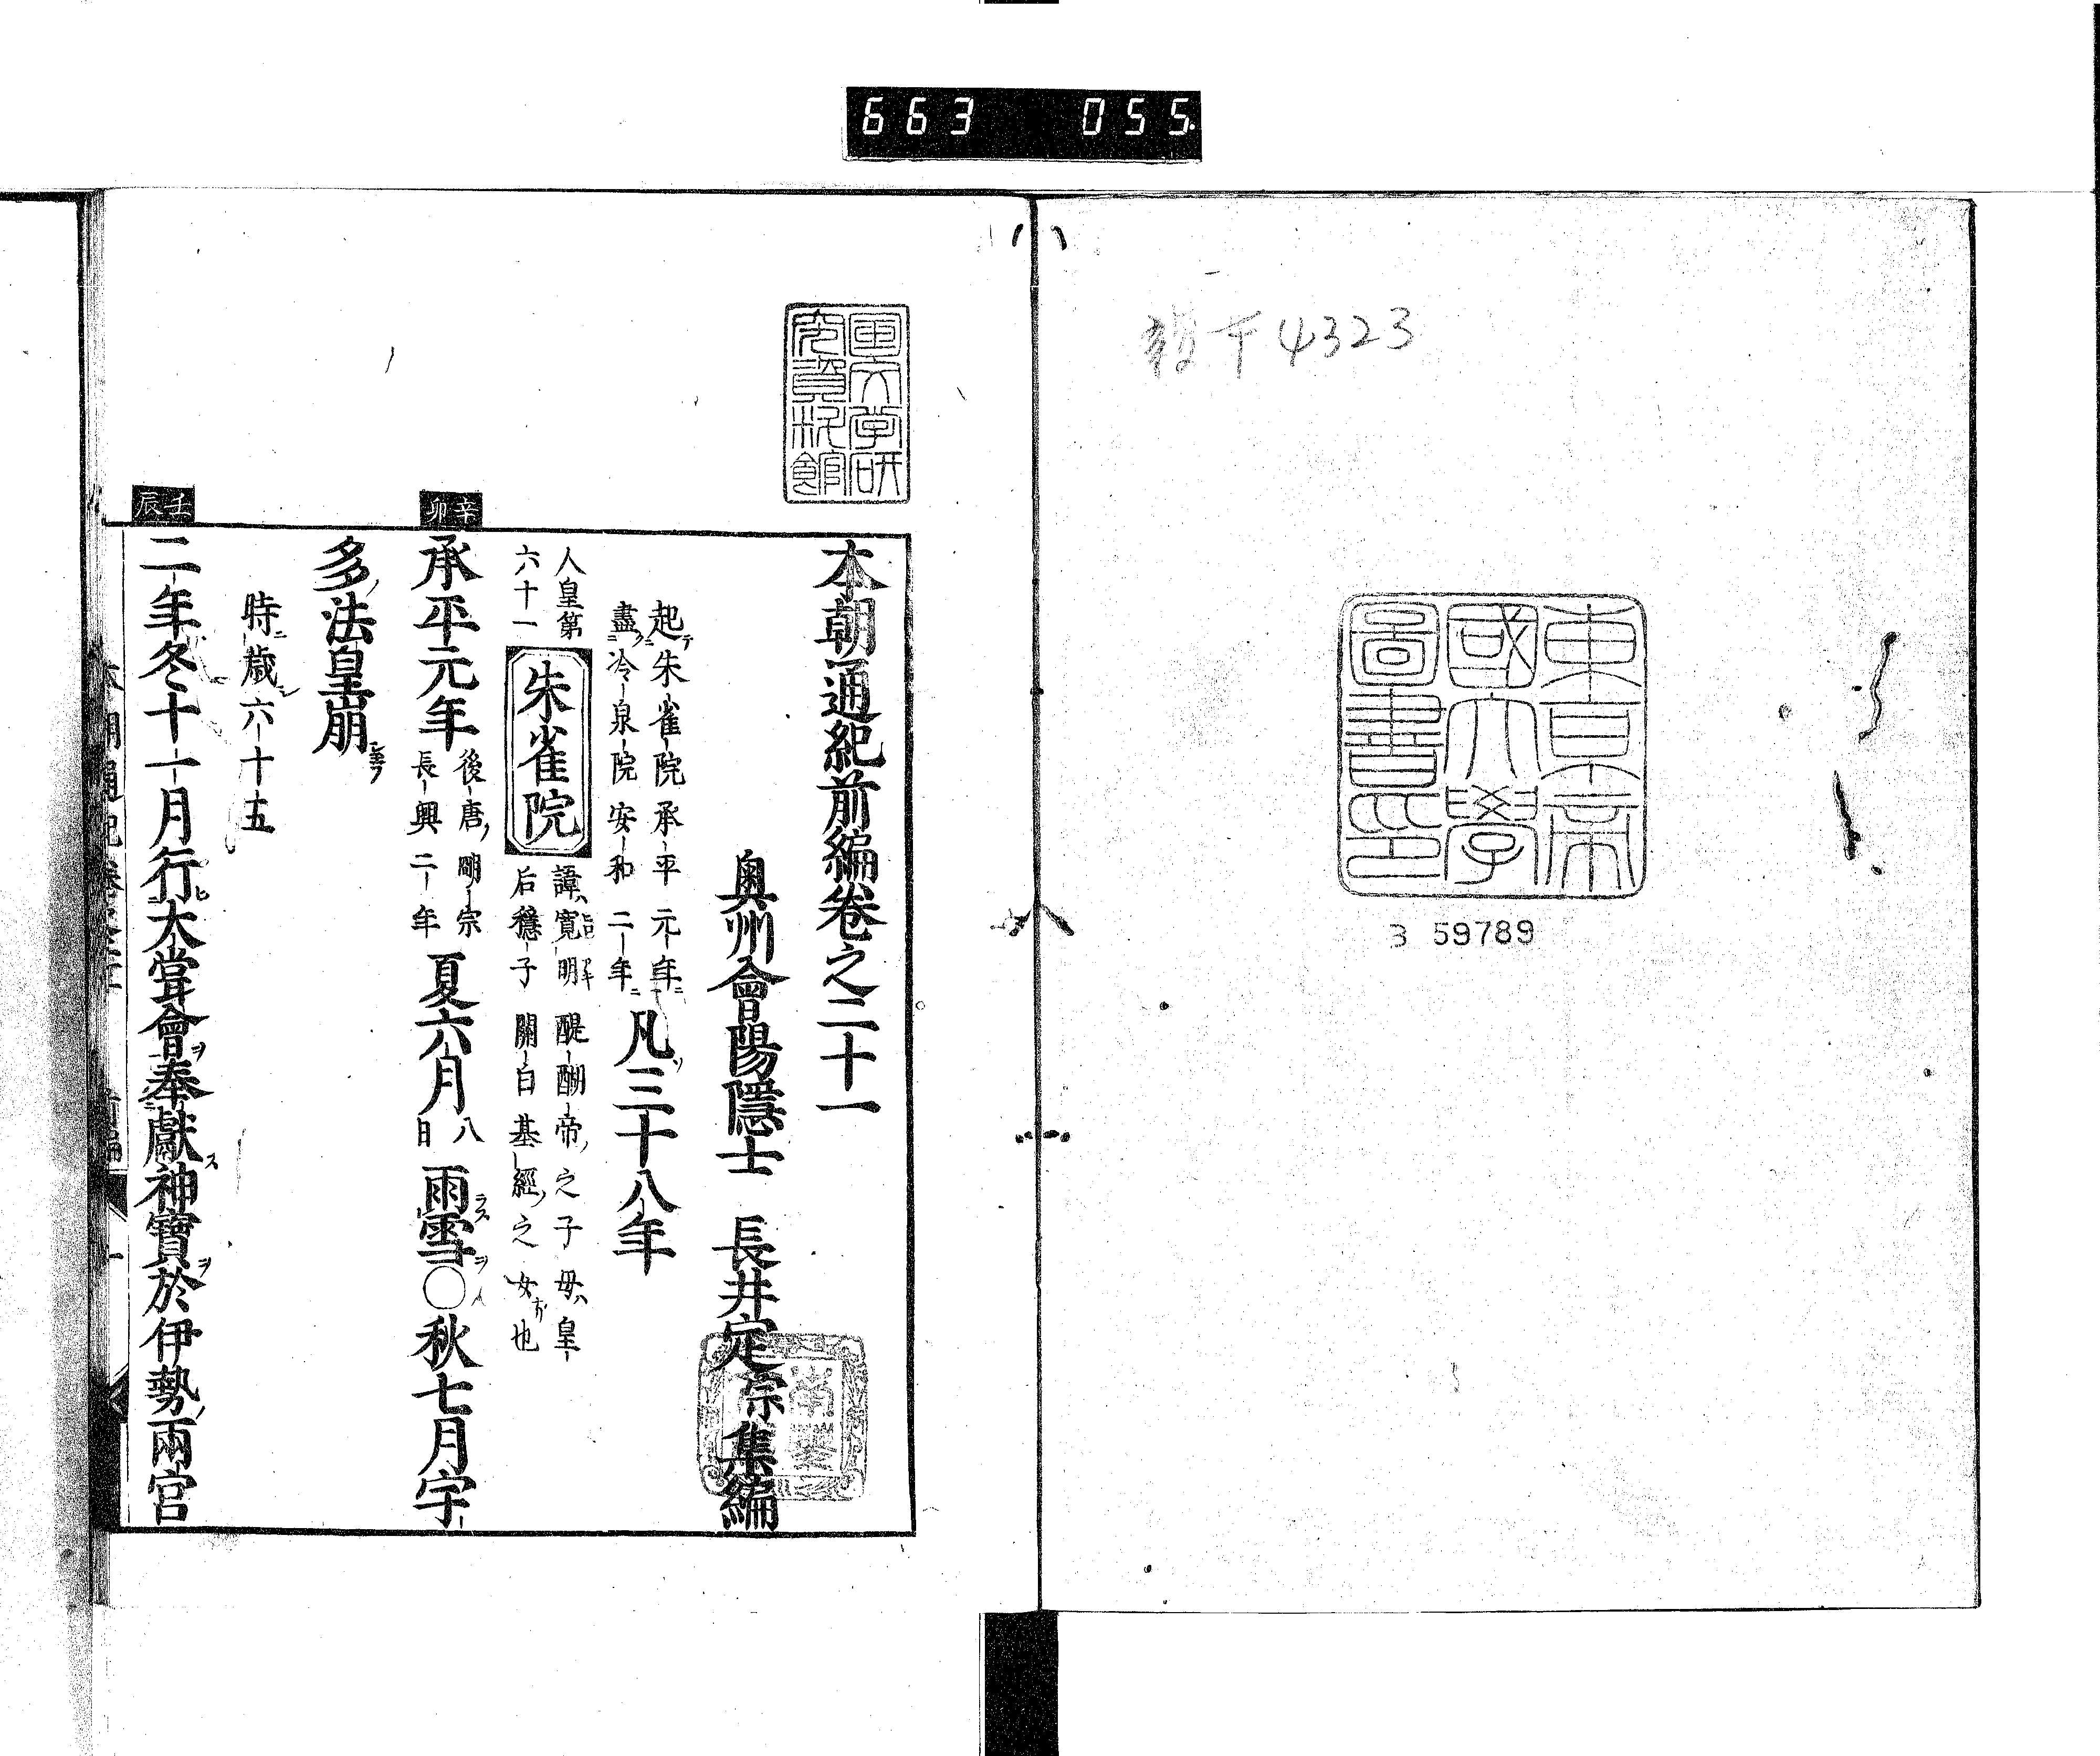 663 055
4323
東京帝
國大學
圖書印
3 59789
国文学研
究資料館
本朝通紀前編卷之二十一
奥州會陽隱士 長井定宗集編
起朱雀院承平元年
盡冷泉院安和二年
凡三十八年
人皇第
六十一
朱雀院
諱寛明醍醐帝之子母皇
后穩子關白基經之女也
辛卯
承平元年
後唐明宗
長興二年
夏六月
八日
雨雪○秋七月宇
多法皇崩
時歳六十五
壬辰
二年冬十一月行大嘗會奉獻神寶於伊勢兩宮